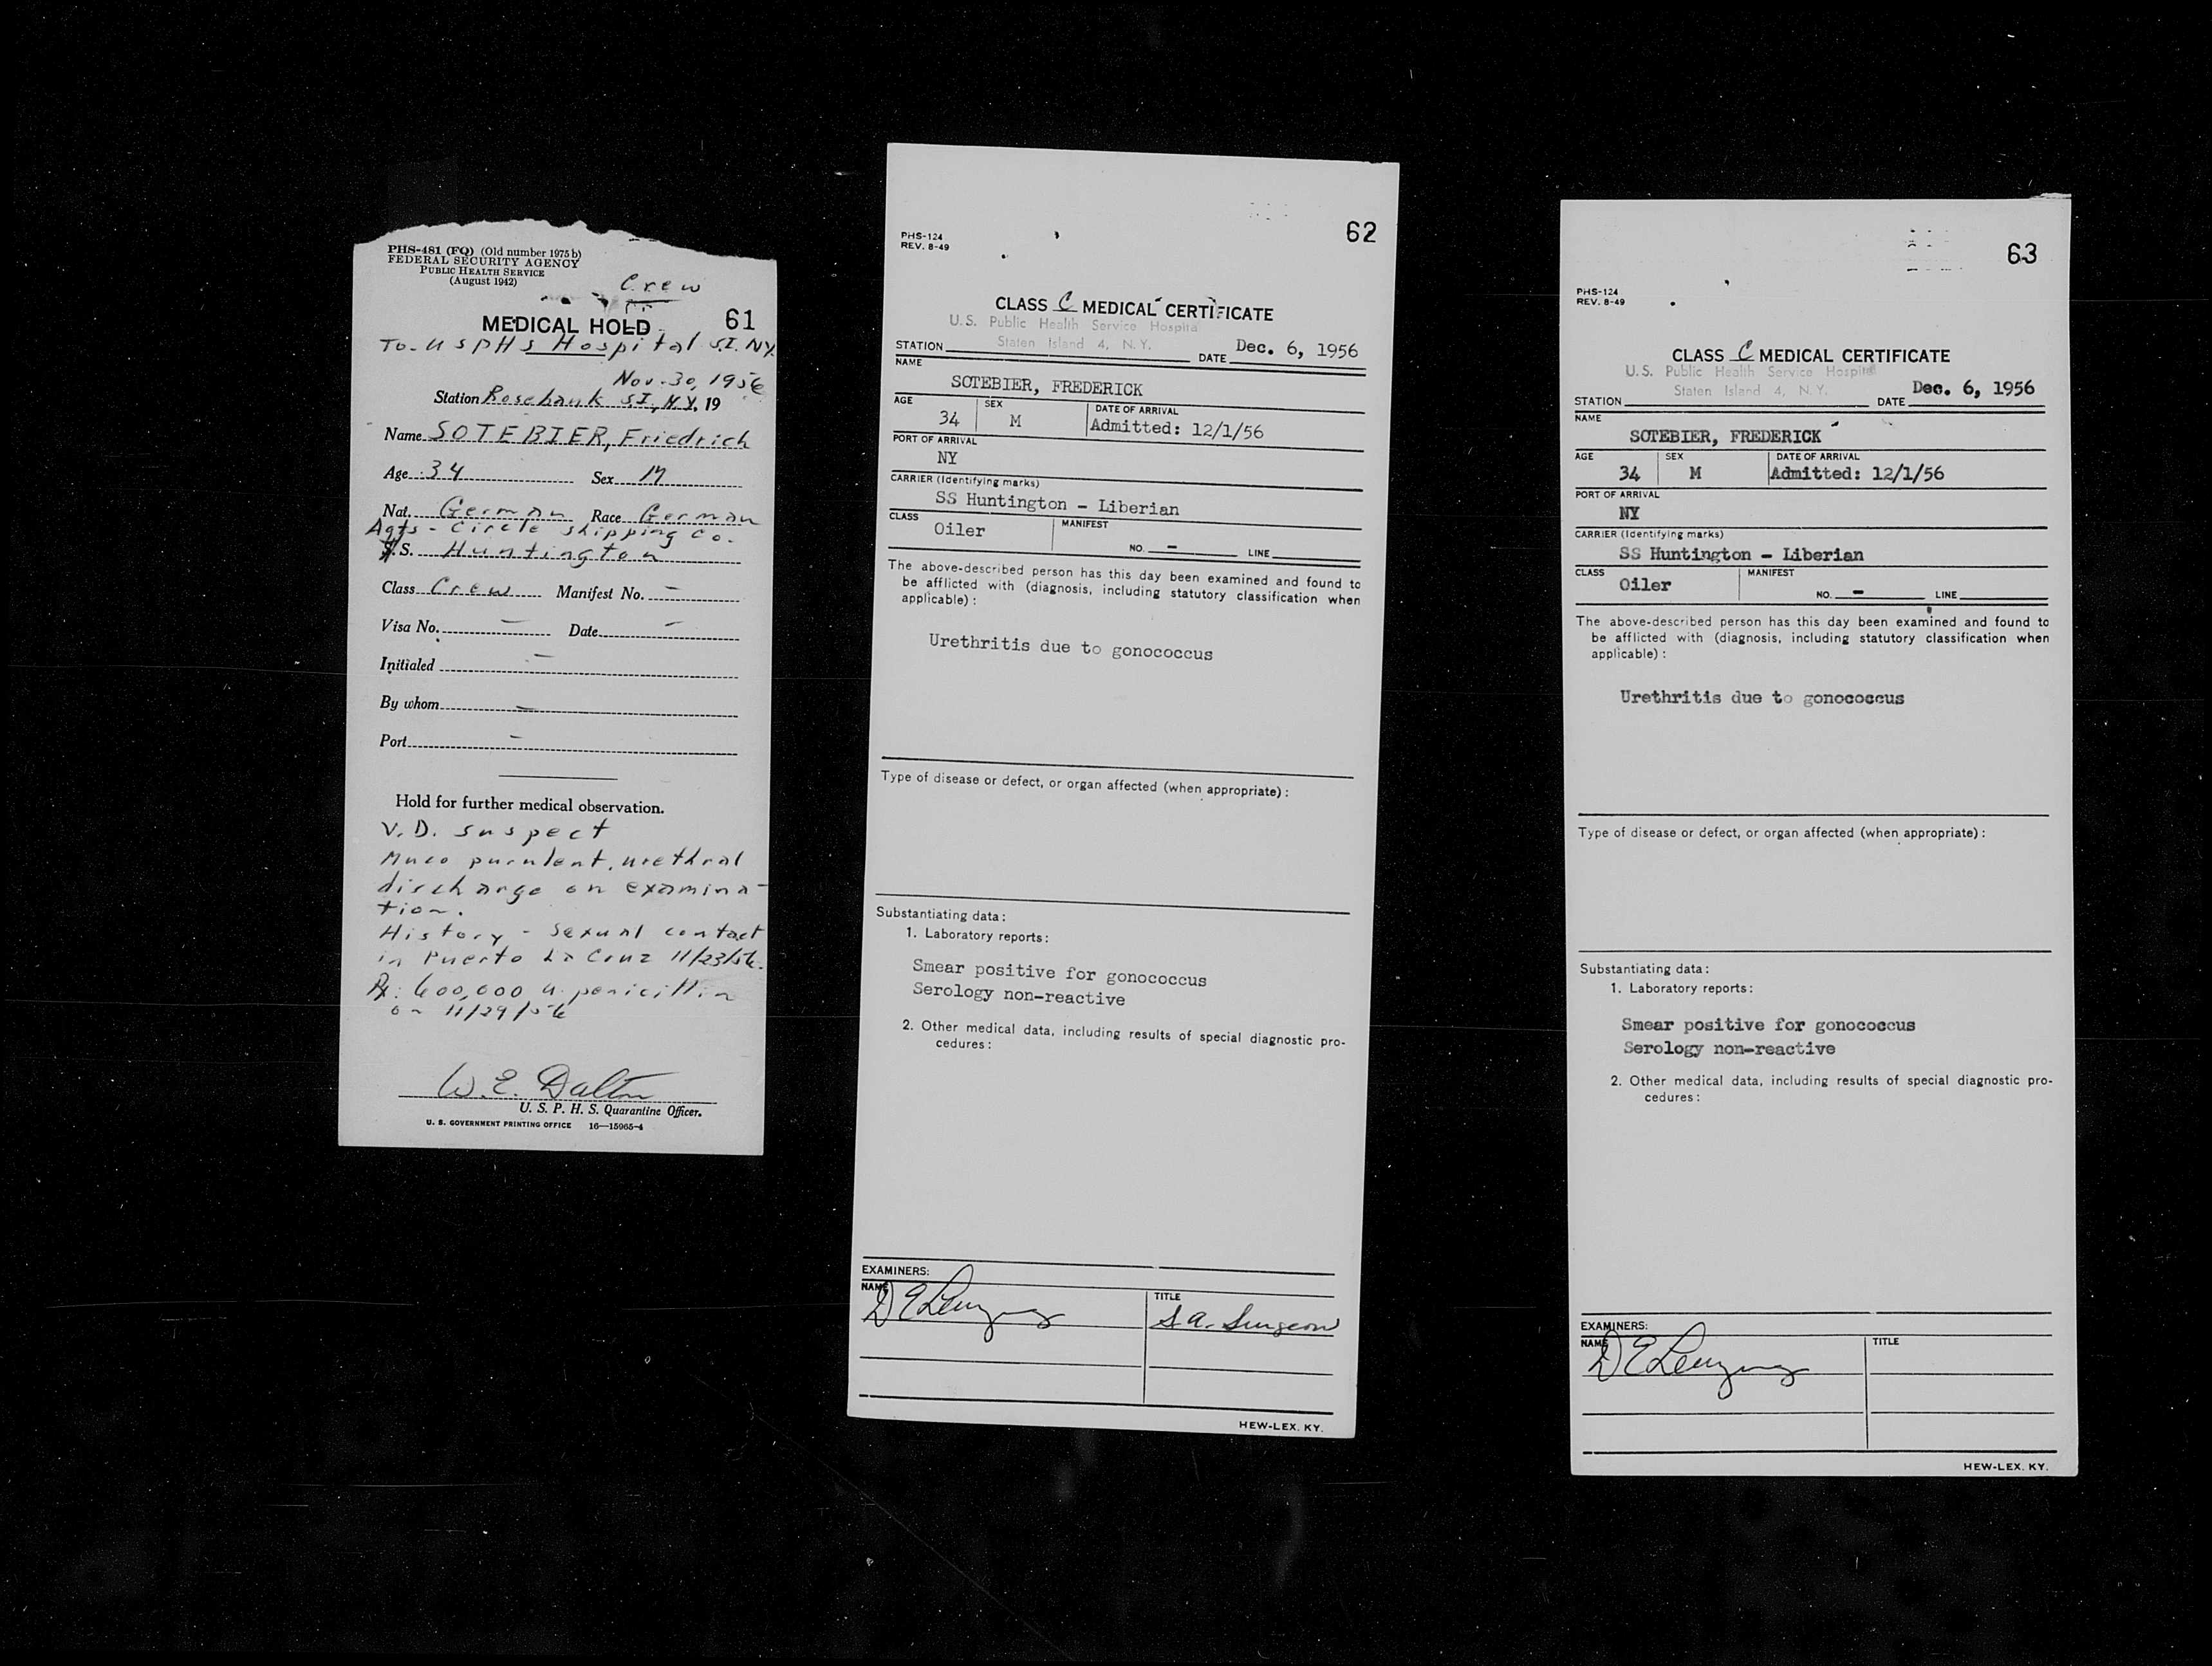 PHS-481 (FQ) (Old number 1975 b)
FEDERAL SECURITY AGENCY
PUBLIC HEALTH SERVICE
(August 1942)
Crew
MEDICAL HOLD
61
To- USPHS Hospital S.I. NY
Nov. 30, 1956
Station Rosebank S.I., N.Y., 19
Name SOTEBIER, Friedrich
Age 34 Sex M
Nat. German Race German
Agts - Circle shipping Co.
S.S. Huntington
Class Crew Manifest No. -
Visa No. - Date -
Initialed -
By whom -
Port -
Hold for further medical observation.
V.D. suspect
Muco purulent, urethral
discharge on examina-
tion.
History - Sexual contact
in Puerto La Cruz 11/23/56.
Rx: 600,000 u. penicillin
on 11/29/56
W. E. Dalton
U. S. P. H. S. Quarantine Officer.
U. S. GOVERNMENT PRINTING OFFICE 16—15965-4
62
PHS-124
REV. 8-49
CLASS C MEDICAL CERTIFICATE
U.S. Public Health Service Hospital
STATION Staten Island 4, N.Y. DATE Dec. 6, 1956
NAME
SOTEBIER, FREDERICK
AGE SEX DATE OF ARRIVAL
34 M Admitted: 12/1/56
PORT OF ARRIVAL
NY
CARRIER (Identifying marks)
SS Huntington - Liberian
CLASS MANIFEST
Oiler
NO. - LINE
The above-described person has this day been examined and found to
be afflicted with (diagnosis, including statutory classification when
applicable):
Urethritis due to gonococcus
Type of disease or defect, or organ affected (when appropriate):
Substantiating data:
1. Laboratory reports:
Smear positive for gonococcus
Serology non-reactive
2. Other medical data, including results of special diagnostic pro-
cedures:
EXAMINERS:
NAME TITLE
D E S A. Surgeon
HEW-LEX. KY.
63
PHS-124
REV. 8-49
CLASS C MEDICAL CERTIFICATE
U.S. Public Health Service Hospital
STATION Staten Island 4, N.Y. DATE Dec. 6, 1956
NAME
SOTEBIER, FREDERICK
AGE SEX DATE OF ARRIVAL
34 M Admitted: 12/1/56
PORT OF ARRIVAL
NY
CARRIER (Identifying marks)
SS Huntington - Liberian
CLASS MANIFEST
Oiler
NO. - LINE
The above-described person has this day been examined and found to
be afflicted with (diagnosis, including statutory classification when
applicable):
Urethritis due to gonococcus
Type of disease or defect, or organ affected (when appropriate):
Substantiating data:
1. Laboratory reports:
Smear positive for gonococcus
Serology non-reactive
2. Other medical data, including results of special diagnostic pro-
cedures:
EXAMINERS:
NAME TITLE
D E
HEW-LEX. KY.